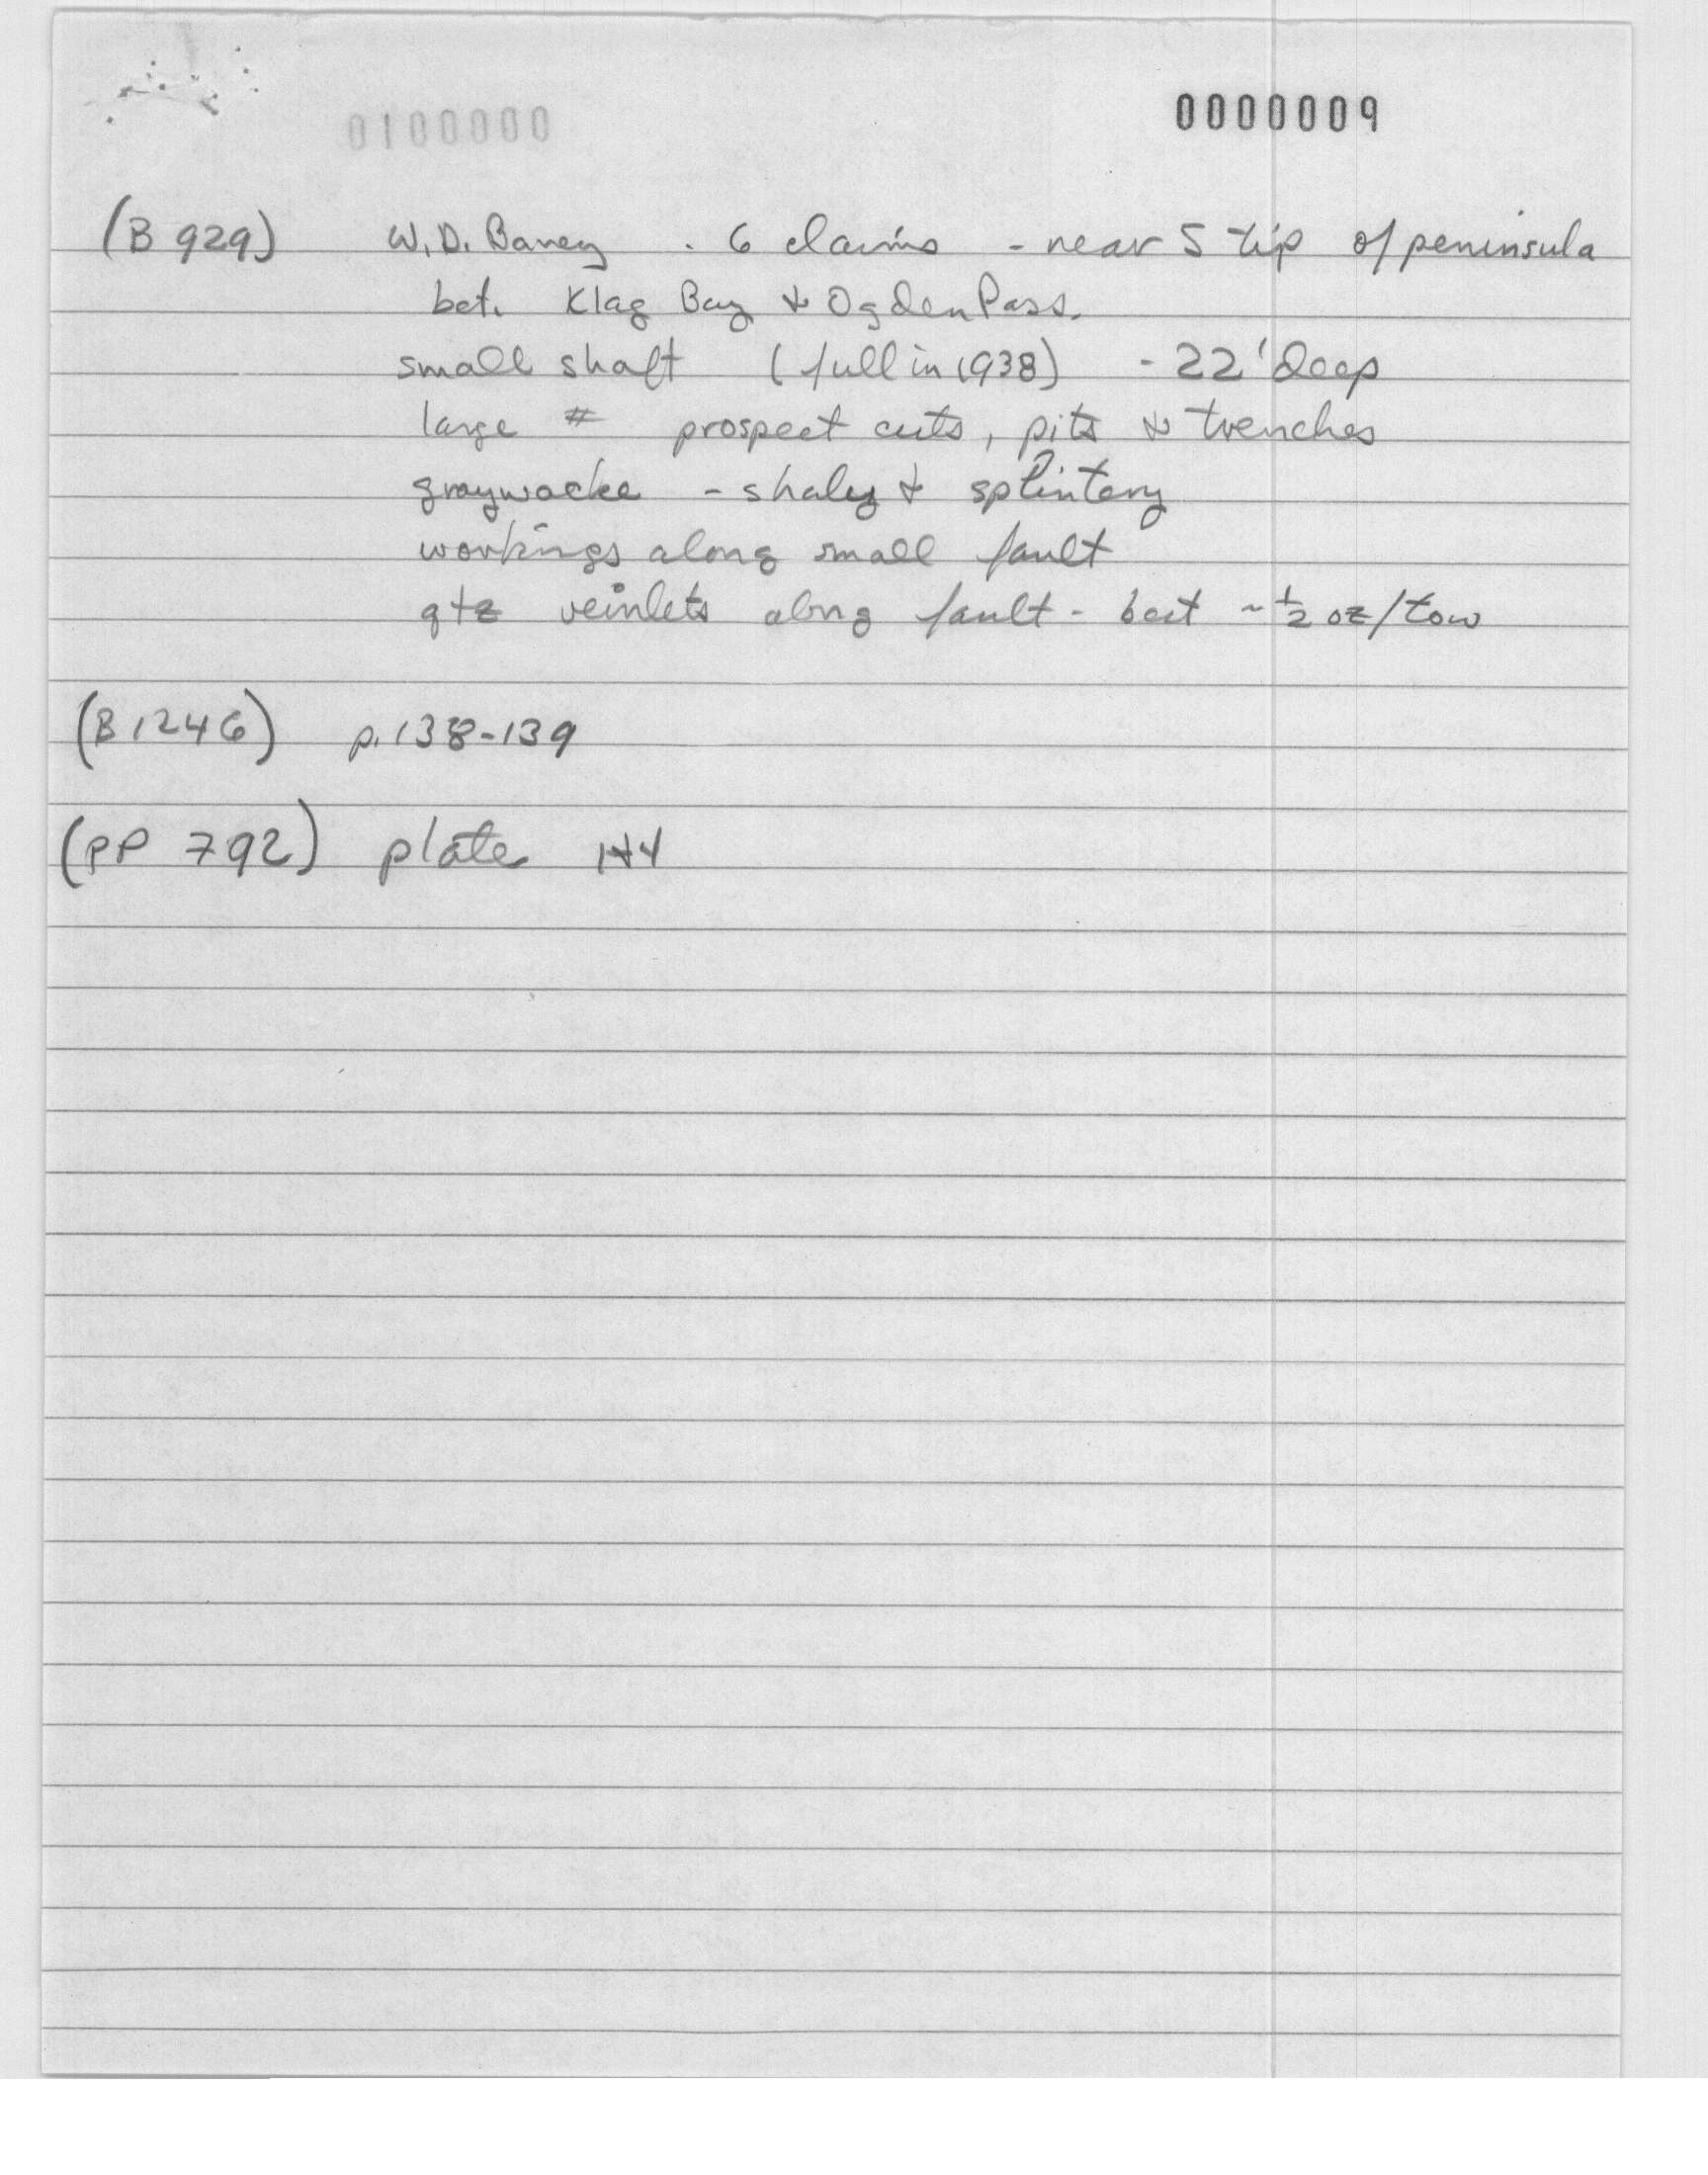 0100000 0000009
(B 929) W.D. Baney . 6 claims - near S tip of peninsula
bet. Klag Bay & Ogden Pass.
small shaft (full in 1938) - 22' deep
large # prospect cuts, pits & trenches
graywacke - shaley & splintery
workings along small fault
qtz veinlets along fault - best ~ 1/2 oz/ton
(B 1246) p. 138-139
(PP 792) plate